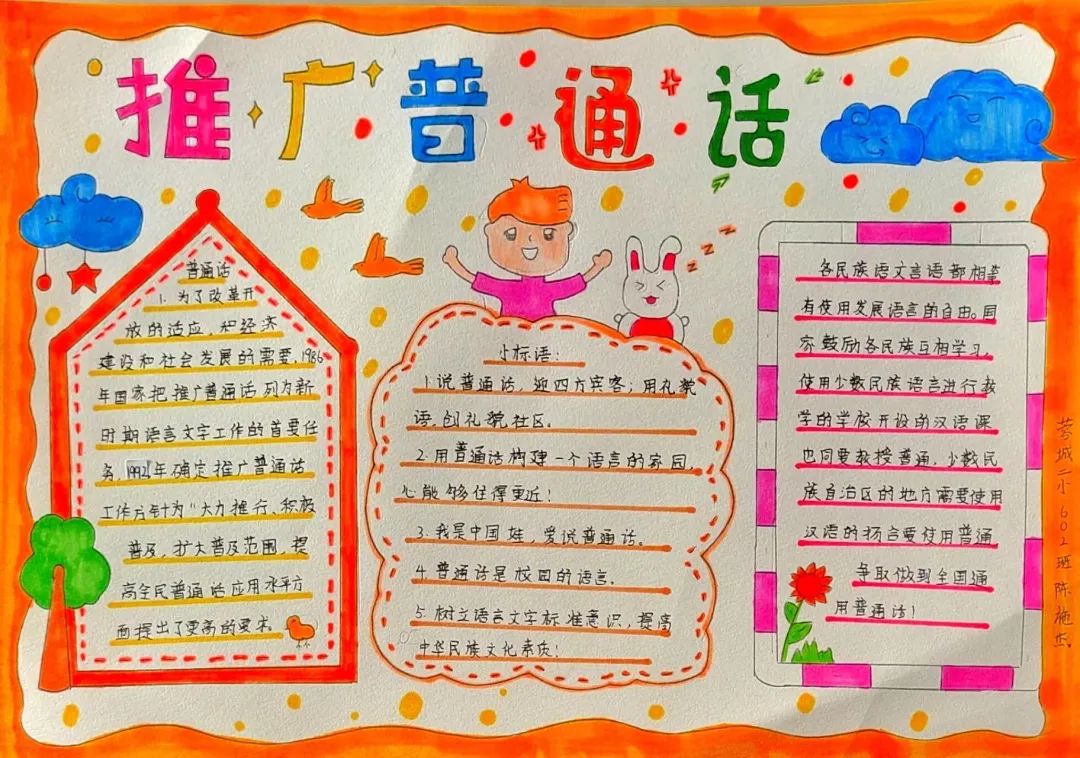 推广普通话
普通话
1.为了改革开
放的适应,和经济
建设和社会发展的需要,1986
年国家把推广普通话列为新
时期语言文字工作的首要任
务,1992年确定推广普通话
工作方针为“大力推行、积极
普及,扩大普及范围,提
高全民普通话应用水平方
面提出了更高的要求.
小标语:
1.说普通话,迎四方宾客;用礼貌
语,创礼貌社区。
2.用普通话构建一个语言的家园,
心能够住得更近!
3.我是中国娃,爱说普通话。
4.普通话是校园的语言.
5.树立语言文字标准意识,提高
中华民族文化素质!
各民族语文言语都相
有使用发展语言的自由。国
家鼓励各民族互相学习,
使用少数民族语言进行教
学的学校开设的汉语课
也同要教授普通,少数民
族自治区的地方需要使用
汉语的扬言要使用普通
争取做到全国通
用普通话!
城二小602班陈施